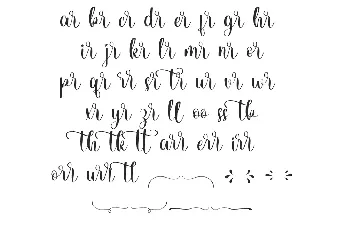 ar br cr dr er fr gr hr
ir jr kr lr mr nr or
pr qr rr sr tr ur vr wr
xr yr zr ll oo ss tb
th tk lt arr err irr
orr urr tl